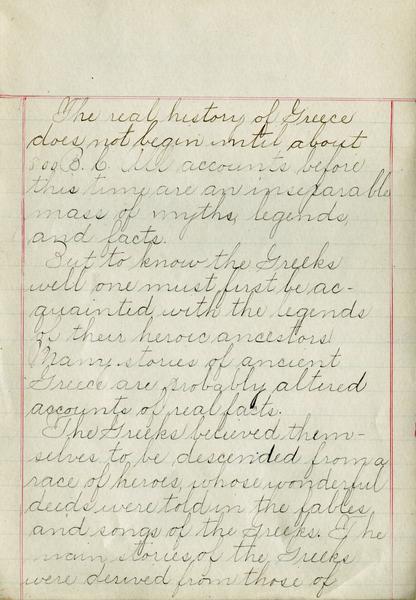 The real history of Greece
does not begin until about
800 B.C. All accounts before
this time are an inseparable
mass of myths, legends,
and facts.
But to know the Greeks
well one must first be ac-
quainted with the legends
of their heroic ancestors.
Many stories of ancient
Greece are probably altered
accounts of real facts.
The Greeks believed them-
selves to be descended from a
race of heroes, whose wonderful
deeds were told in the fables
and songs of the Greeks. The
main stories of the Greeks
were derived from those of